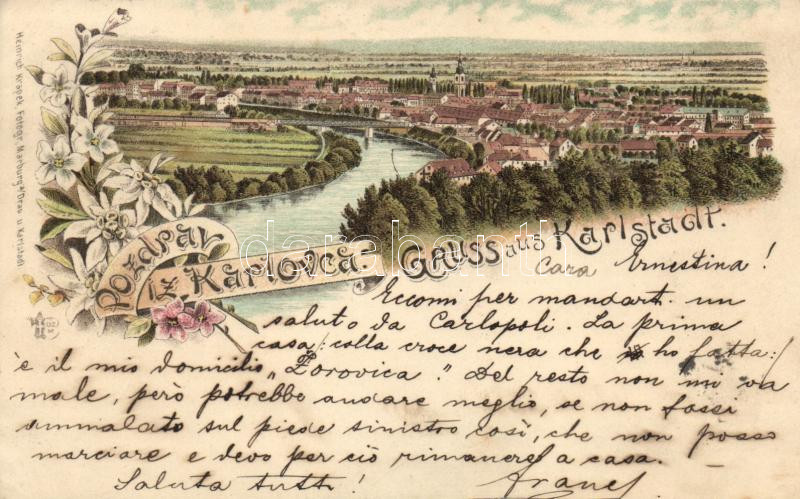 Heinrich Krapek, Fotogr. Marburg a/Drau u. Karlstadt
Pozdrav
iz Karlovca.
Gruss aus Karlstadt.
Cara Ernestina!
Eccomi per mandarti un
saluto da Carlopoli. La prima
casa (colla croce nera che ho fatta)
è il mio domicilio „Zorovica." Del resto non mi va
male, però potrebbe andare meglio, se non fossi
ammalato sul piede sinistro così, che non posso
marciare e devo per ciò rimanere a casa.
Saluta tutti!